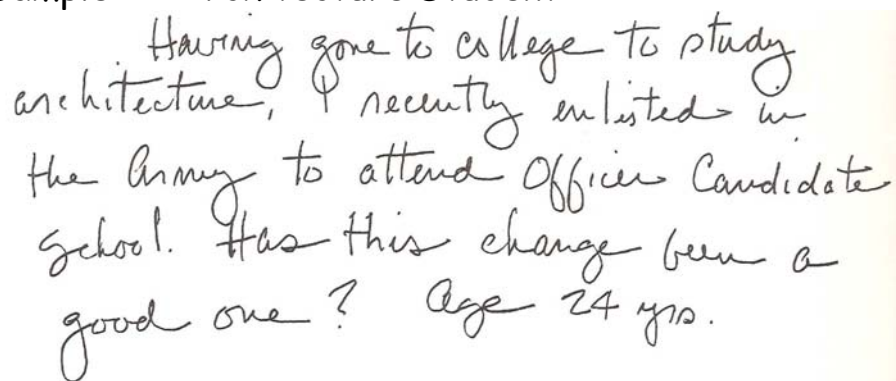 Having gone to college to study
architecture, I recently enlisted in
the Army to attend Officer Candidate
School. Has this change been a
good one? Age 24 yrs.